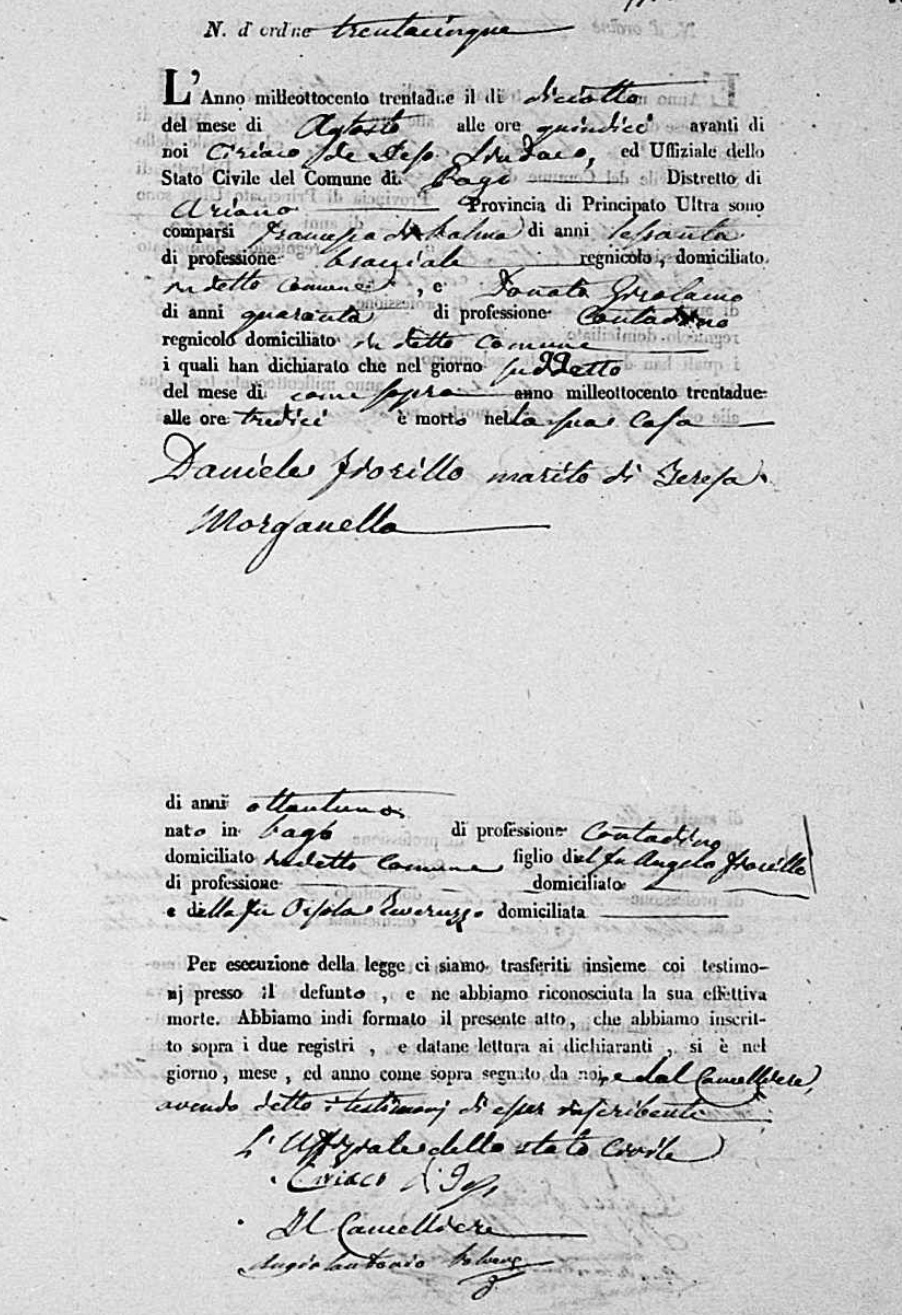 N. d'ordne trentacinque
L'Anno milleottocento trentadue il di diciotto
del mese di Agosto alle ore quindici avanti di
noi Ciriaco Sindaco, ed Uffiziale dello
Stato Civile del Comune di Bagi Distretto di
Ariano Provincia di Principato Ultra sono
comparsi di anni sessanta
di professione bracciale regnicolo, domiciliato
in detto comune, e Donato Girolamo
di anni quaranta di professione Contadino
regnicolo domiciliato in detto Comune
i quali han dichiarato che nel giorno suddetto
del mese di come sopra anno milleottocento trentadue
alle ore tredici è morto nella sua casa
Daniele Fiorillo marito di Teresa
Morganella
di anni ottantuno
nato in bagi di professione Contadino
domiciliato in detto Comune figlio del fu Angelo Fiorillo
di professione domiciliato
e della fu domiciliata
Per esecuzione della legge ci siamo trasferiti insieme coi testimo-
nj presso il defunto, e ne abbiamo riconosciuta la sua effettiva
morte. Abbiamo indi formato il presente atto, che abbiamo inscrit-
to sopra i due registri, e datane lettura ai dichiaranti, si è nel
giorno, mese, ed anno come sopra segnato da noi, e dal Cancelliere,
avendo detto i testimonj di esser
L'Uffiziale dello stato Civile
Ciriaco
Il Cancelliere
Angiolantonio